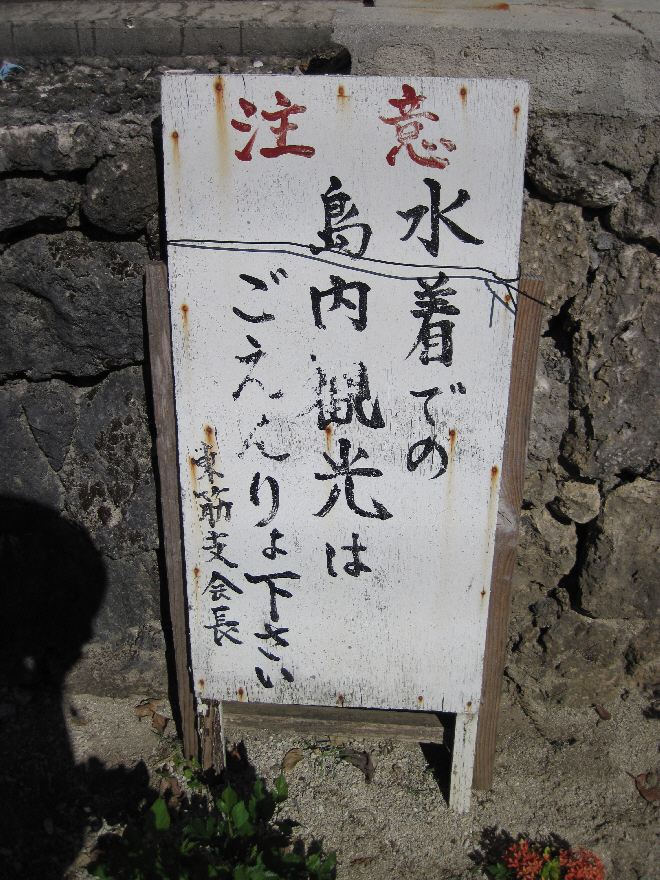 注意
水着での
島内観光は
ごえんりょ下さい
東筋支会長